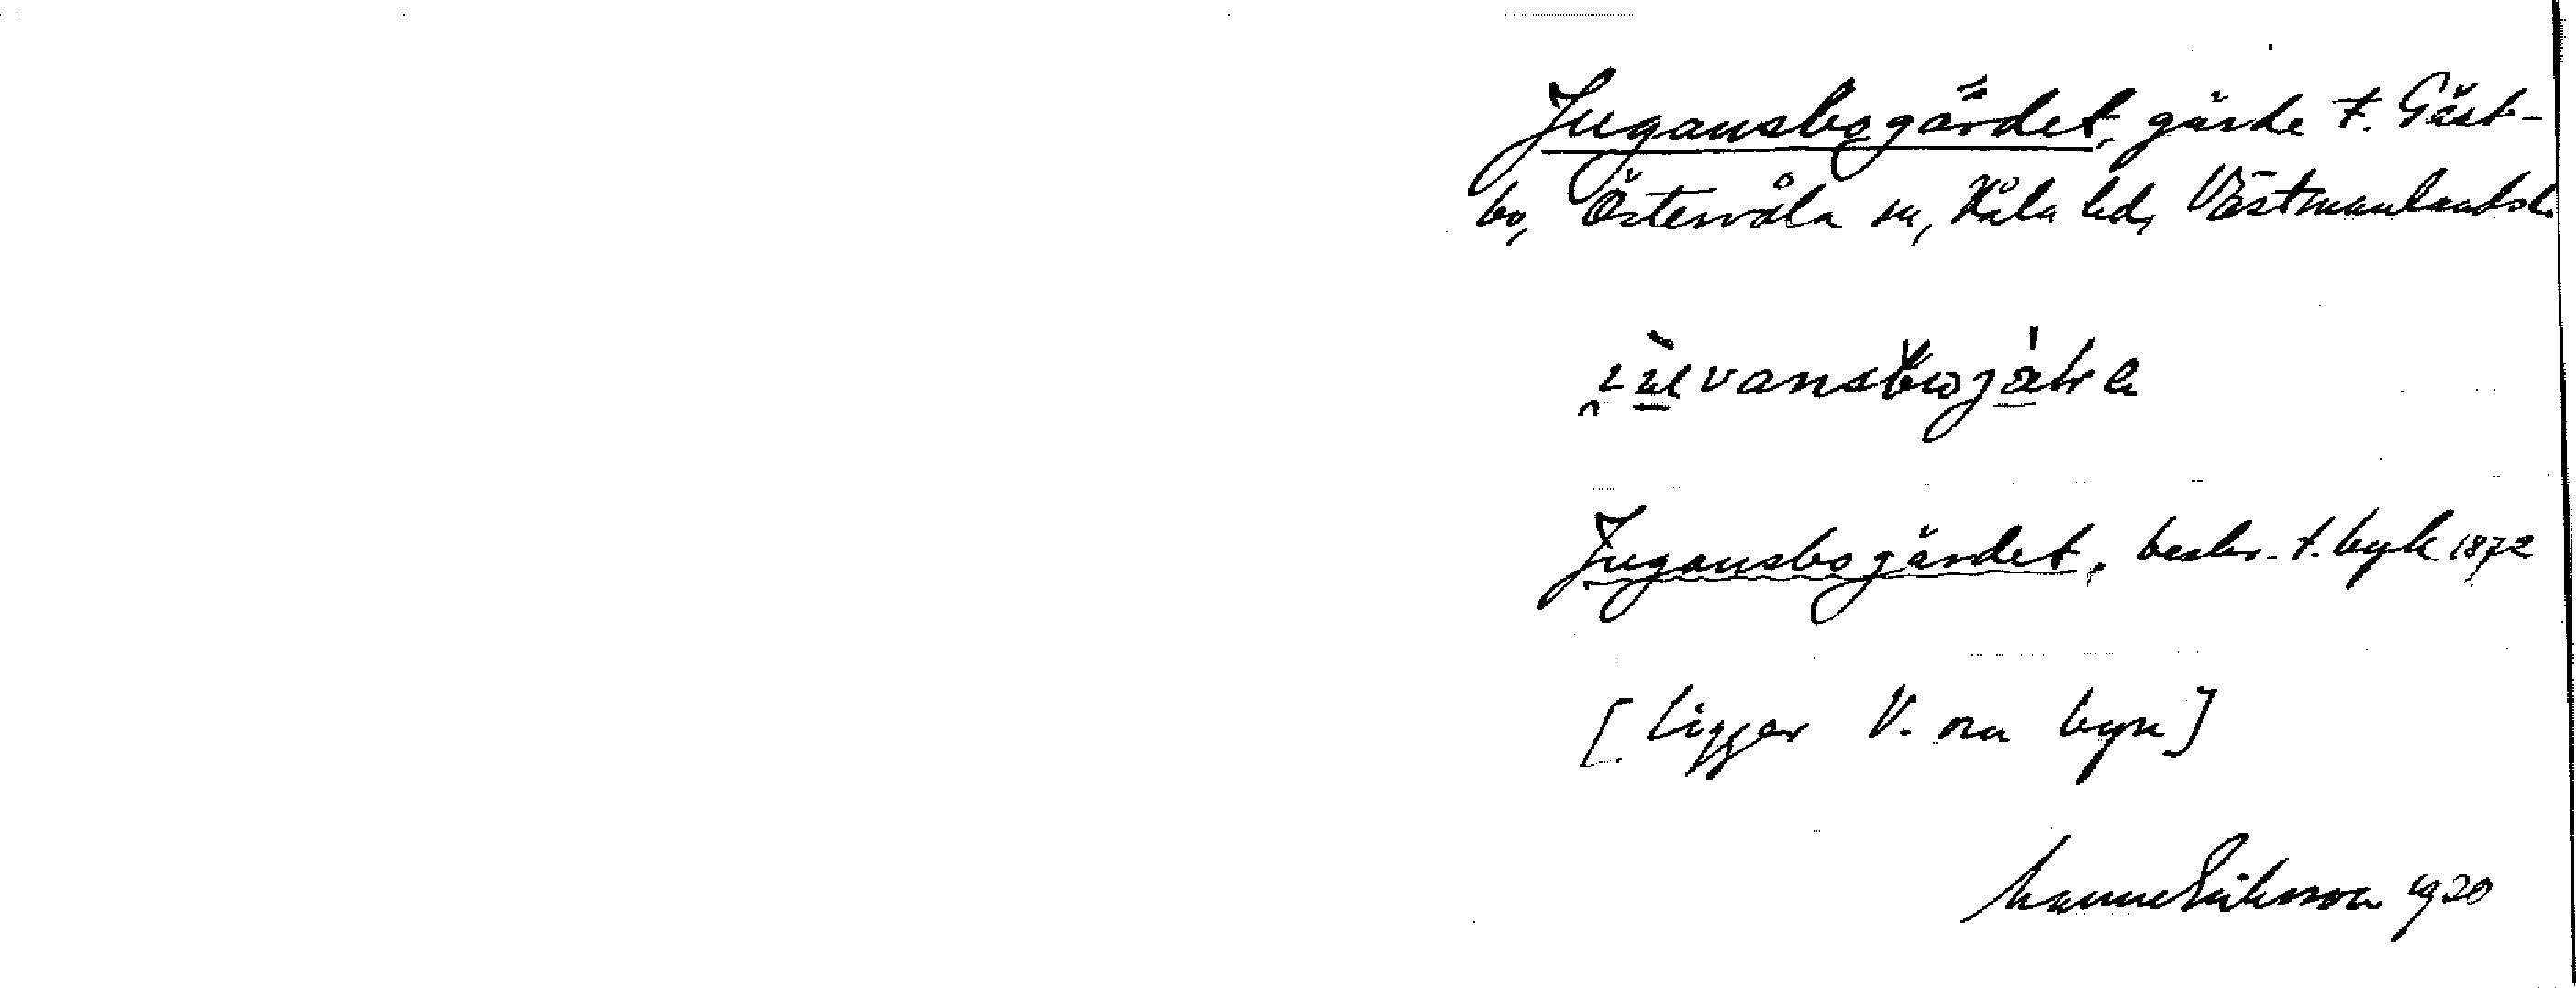 Jugansbogärdet, gärde t. Gäst-
bo, Östervåla sn, Våla hd, Västmanlands l.
Jugansbogärdet, beskr. t. byk 1872
[Ligger V. om byn]
Manne Eriksson 1920